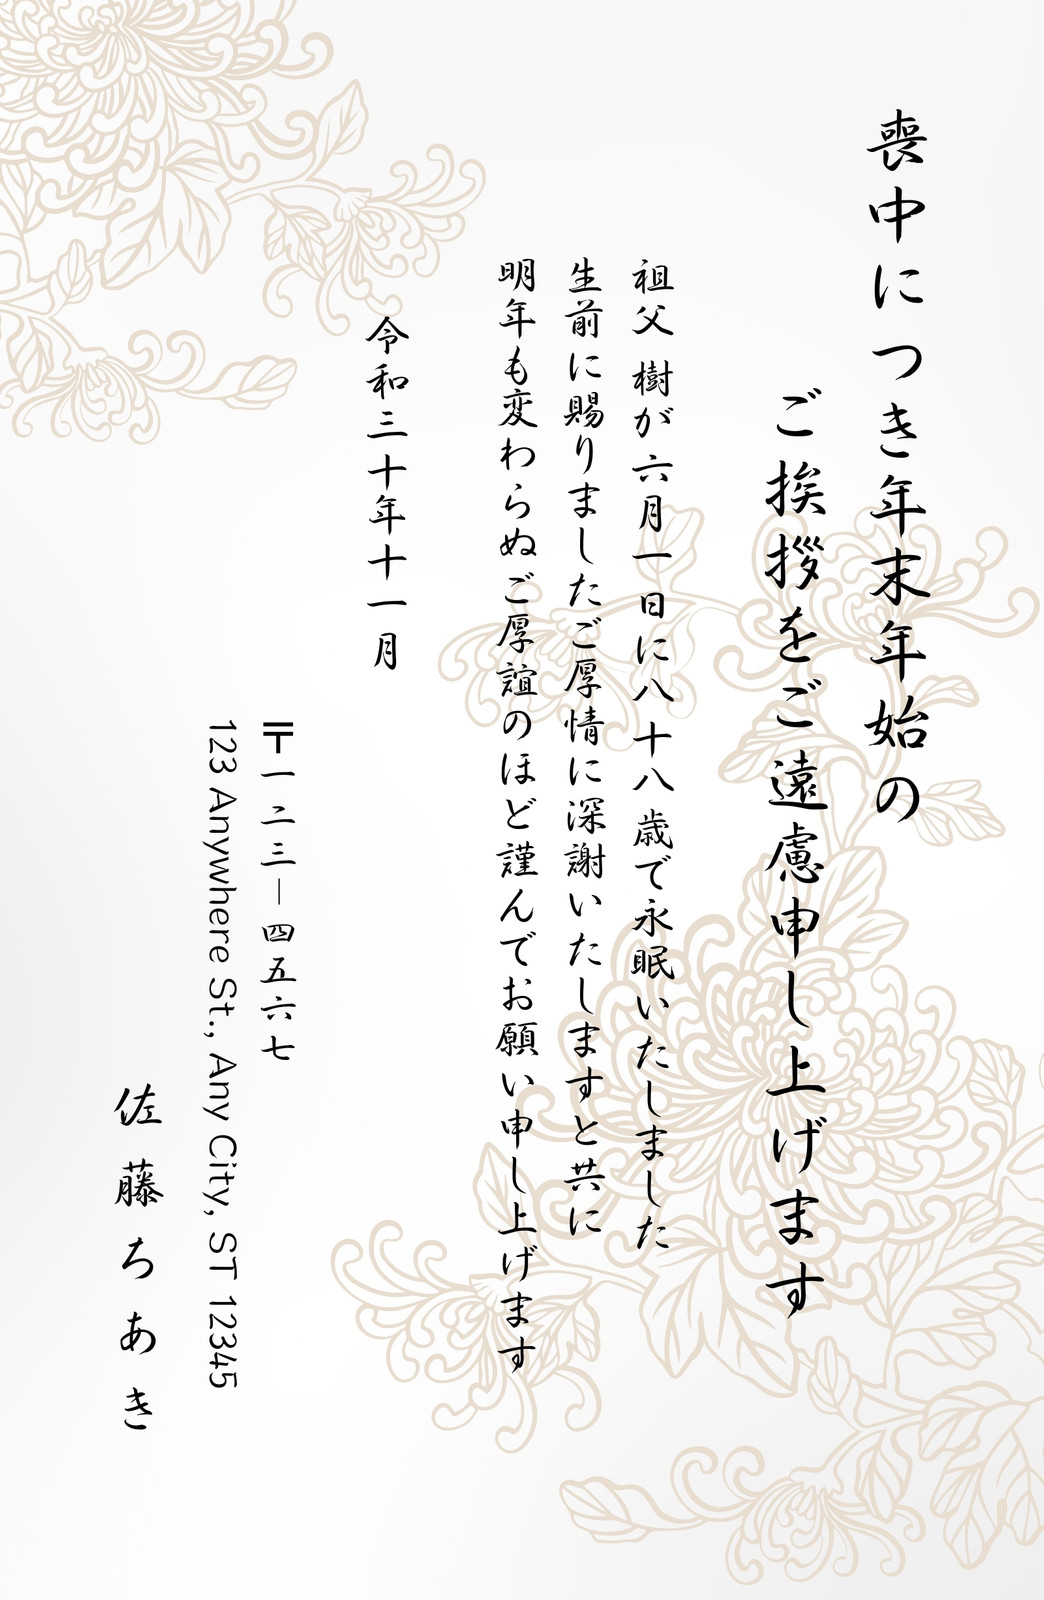 喪中につき年末年始の
ご挨拶をご遠慮申し上げます
祖父 樹が六月一日に八十八歳で永眠いたしました
生前に賜りましたご厚情に深謝いたしますと共に
明年も変わらぬご厚誼のほど謹んでお願い申し上げます
令和三十年十一月
〒一二三－四五六七
123 Anywhere St., Any City, ST 12345
佐藤ちあき